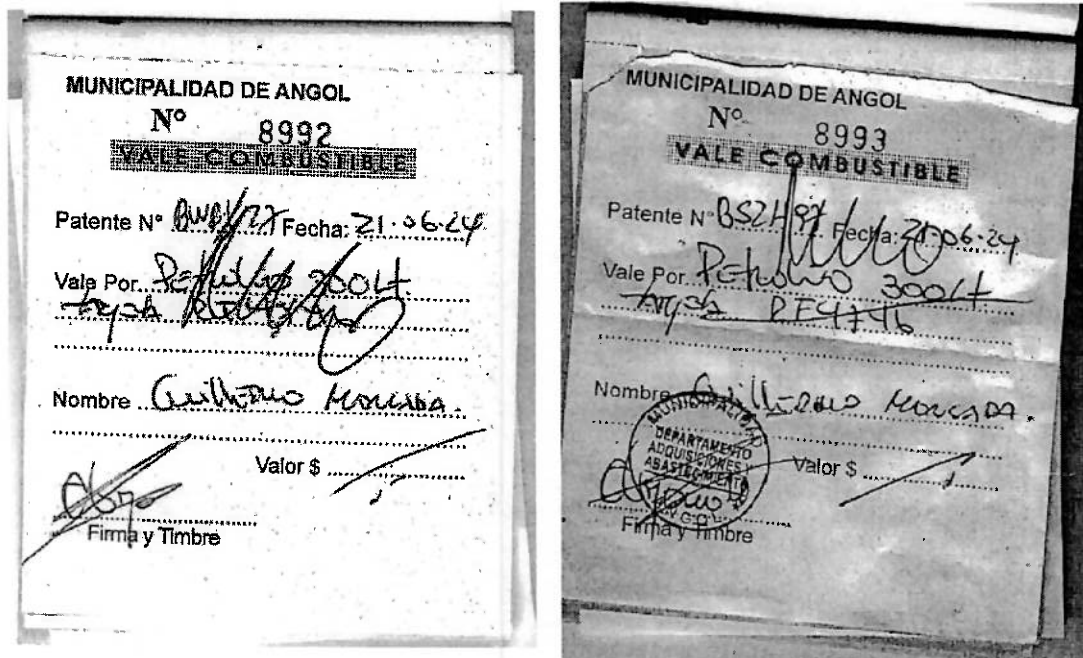 MUNICIPALIDAD DE ANGOL
Nº 8992
VALE COMBUSTIBLE
Patente Nº Fecha: 21.06.24
Vale Por Petroleo 300Lt
Nombre Guillermo Moncada.
Valor $
Firma y Timbre
MUNICIPALIDAD DE ANGOL
Nº 8993
VALE COMBUSTIBLE
Patente Nº BSZH97 Fecha: 21.06.24
Vale Por Petroleo 300Lt
Nombre Guillermo Moncada.
MUNICIPALIDAD
DEPARTAMENTO
ADQUISICIONES Y
ABASTECIMIENTO
Valor $
Firma y Timbre